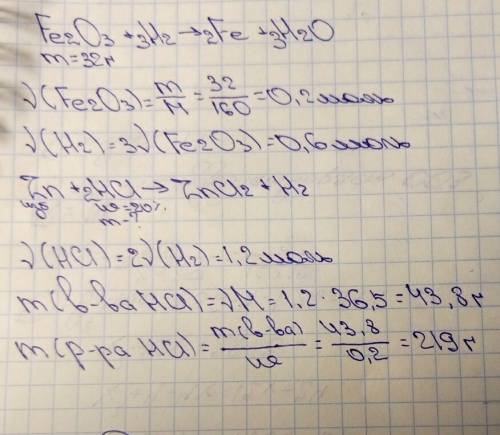 Fe2O3 + 3H2 → 2Fe + 3H2O
m=32г
ν(Fe2O3) = m/M = 32/160 = 0,2 моль
ν(H2) = 3ν(Fe2O3) = 0,6 моль
Zn + 2HCl → ZnCl2 + H2
изб ω=20%
m-?
ν(HCl) = 2ν(H2) = 1,2 моль
m(в-ва HCl) = νM = 1,2 · 36,5 = 43,8г
m(р-ра HCl) = m(в-ва)/ω = 43,8/0,2 = 219г